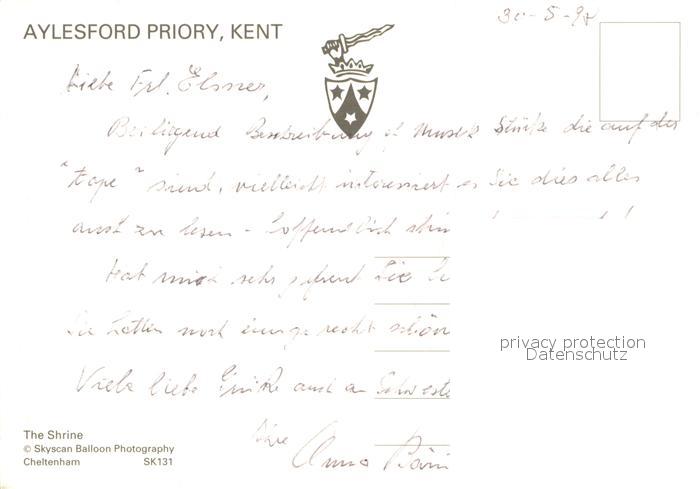 AYLESFORD PRIORY, KENT
30-5-98
Liebe Frl. Elsner,
Beiliegend Beschreibung of Musik Stücke die auf der
"tape" sind, vielleicht interessiert es Sie dies alles
zu lesen - hoffentlich
Hat mich sehr gefreut Sie
Sie hatten noch einige recht schön
Viele liebe Grüße auch an Schweste
Ihre Anna
privacy protection
Datenschutz
The Shrine
© Skyscan Balloon Photography
Cheltenham SK131